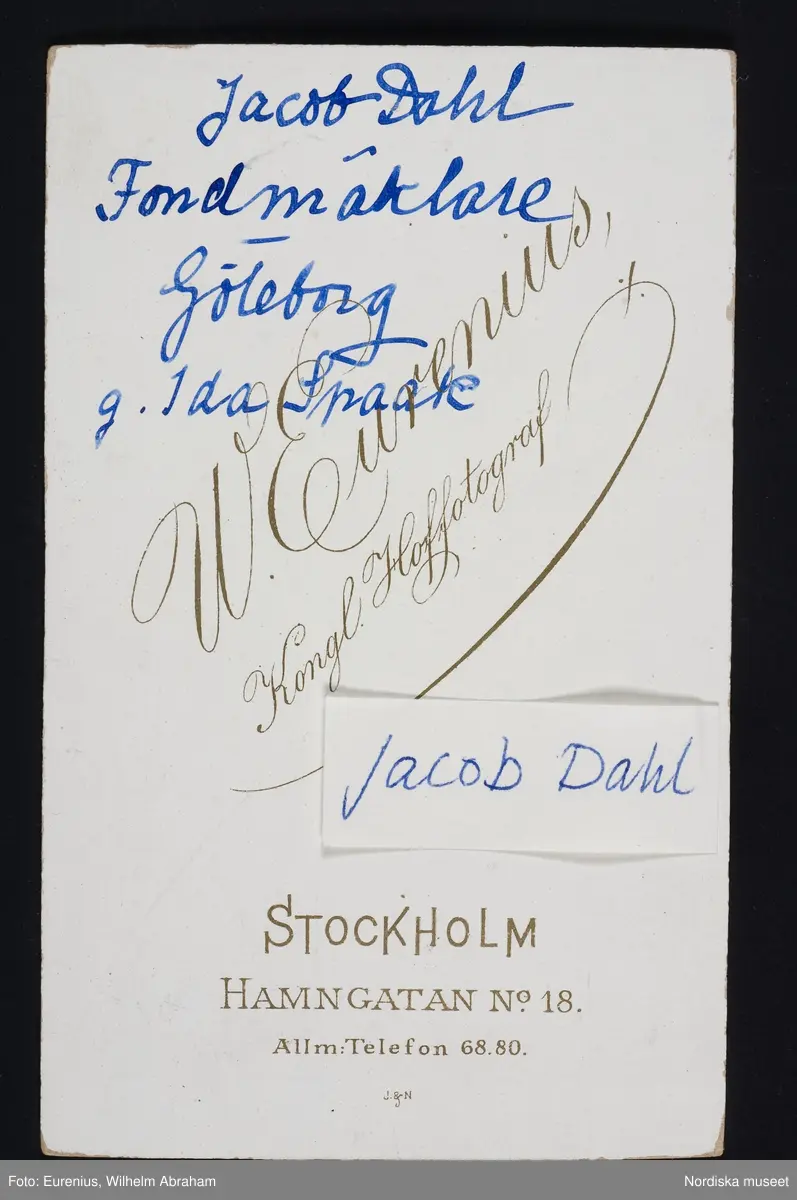 Jacob Dahl
Fondmäklare
Göteborg
g. Ida Spaak
W. Eurenius,
Kongl. Hoffotograf
Jacob Dahl
STOCKHOLM
HAMNGATAN No 18.
Allm:Telefon 68.80.
J.&N
Foto: Eurenius, Wilhelm Abraham
Nordiska museet